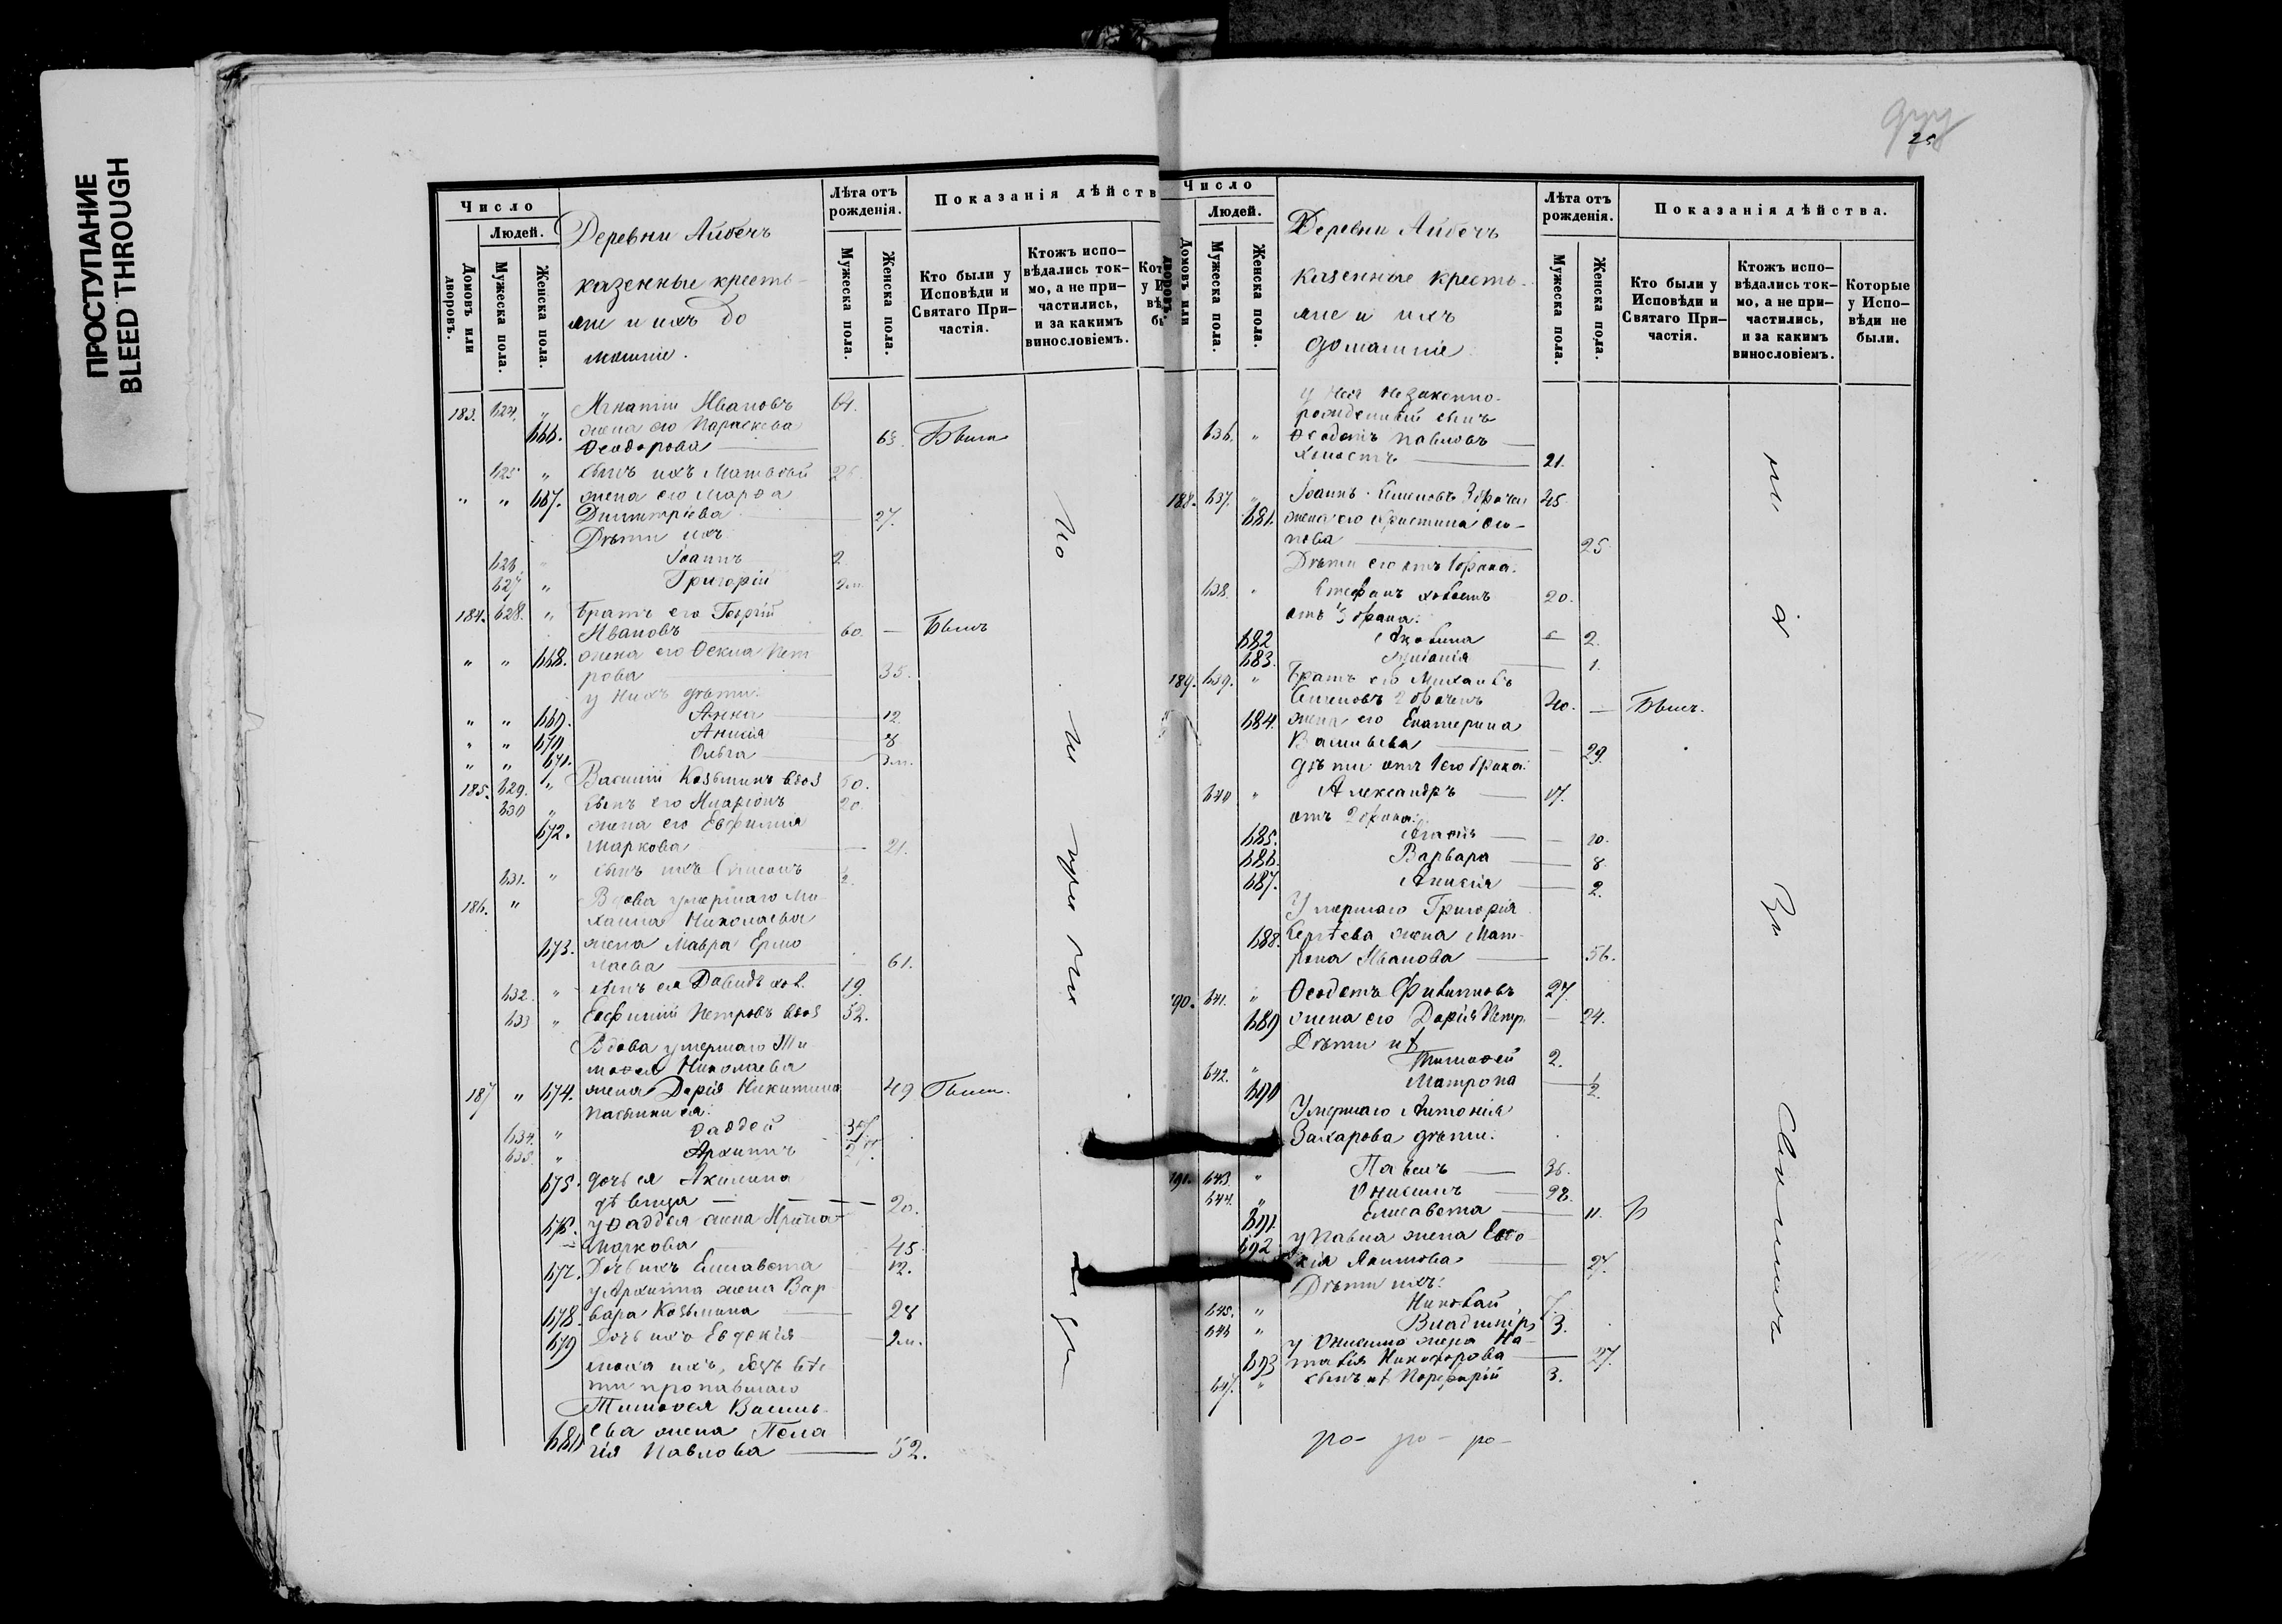 ПРОСТУПАНИЕ
BLEED THROUGH
Число
Людей.
Домовъ или дворовъ.
Мужеска пола.
Женска пола.
Деревни Айбечь
казенные кресть-
яне и ихъ до
машніе.
Лѣта отъ рожденія.
Мужеска пола.
Женска пола.
Показанія дѣйств
Кто были у Исповѣди и Святаго Причастія.
Ктожъ испо-
вѣдались ток-
мо, а не при-
частились,
и за какимъ
винословіемъ.
183. 624. " Игнатій Ивановъ 64.
666. жена его Параскева
Ѳеодорова 63. Были
625 " сынъ ихъ Матвѣй
" " 667. жена его Марѳа
Димитріева 27.
Дѣти ихъ
626 " Іоаннъ 2
627 " Григорій 2м.
184. 628. " братъ его Георгій
Ивановъ 60. — Былъ
" " 668. жена его Ѳекла Пет
рова 35.
у нихъ дѣти:
" " 669. Анна 12.
" " 670. Анисія 8
" " 671. Ольга 3м.
185. 629. " Василій Козьминъ вдов
630 " сынъ его Иларіонъ 20.
672. жена его Евфимія
Маркова 21.
631. " сынъ ихъ Симеонъ
186. " Вдова умершаго Ми
хаила Николаева
673. жена Мавра Ермо
лаева 61.
632. " сынъ ея Давидъ хол. 19.
633 " Евфимій Петровъ вдов 52.
Вдова умершаго Ти
моѳея Николаева
187 " 674. жена Дарія Никитина 49 Были.
пасынки ея:
634. " Ѳаддей
635. " Архиппъ
675. дочь ея Акилина
дѣвица 20.
676. у Ѳаддея жена Ирина
Маркова 45
677. Дочь ихъ Елисавета 12.
у Архиппа жена Вар
678. вара Козьмина 28
679 Дочь ихъ Евдокія 2м.
ти пропавшаго
Тимоѳея Василь-
680 ева жена Пела
гія Павлова 52.
25
Число
Людей.
Домовъ или дворовъ.
Мужеска пола.
Женска пола.
Деревни Айбечь
казенные кресть-
яне и ихъ
домашніе
Лѣта отъ рожденія.
Мужеска пола.
Женска пола.
Показанія дѣйства.
Кто были у Исповѣди и Святаго Причастія.
Ктожъ испо-
вѣдались ток-
мо, а не при-
частились,
и за какимъ
винословіемъ.
Которые у Исповѣди не были.
у нея незаконно-
рожденный сынъ
636. " Ѳеодотъ Павловъ
холостъ 21.
188. 637. " Іоаннъ Семеновъ 3 брачен 45
681. жена его Христина Оси-
пова 25
Дѣти его отъ 1 брака:
638. " Стефанъ холостъ 20.
отъ 3 брака:
682 Акилина 2.
683. 1.
189. 639. " Братъ его Михаилъ
Семеновъ 2 браченъ 40. — Былъ.
684. жена его Екатерина
Васильева 29.
дѣти отъ 1 его брака:
640 " Александръ 17.
отъ 2 брака:
685. 10.
686. Варвара 8.
687. Анисія 2.
Умершаго Григорія
688. Сергѣева жена Мат-
рона Иванова 56.
190. 641. " Ѳеодотъ Филипповъ 27.
689 жена его Дарія Петр. 24.
Дѣти их
642. " Тимоѳей 2.
690 Матрона
Умершаго Антонія
Захарова дѣти:
191. 643. " Павелъ 36.
644. " Онисимъ 28.
691. Елисавета 11.
692 у Павла жена Евдо
кія 27.
Дѣти ихъ:
645. " Николай 7.
646 " Владиміръ 3.
у Онисима жена На-
693 талія Никифорова 27.
647. " сынъ их Порфирій 3.